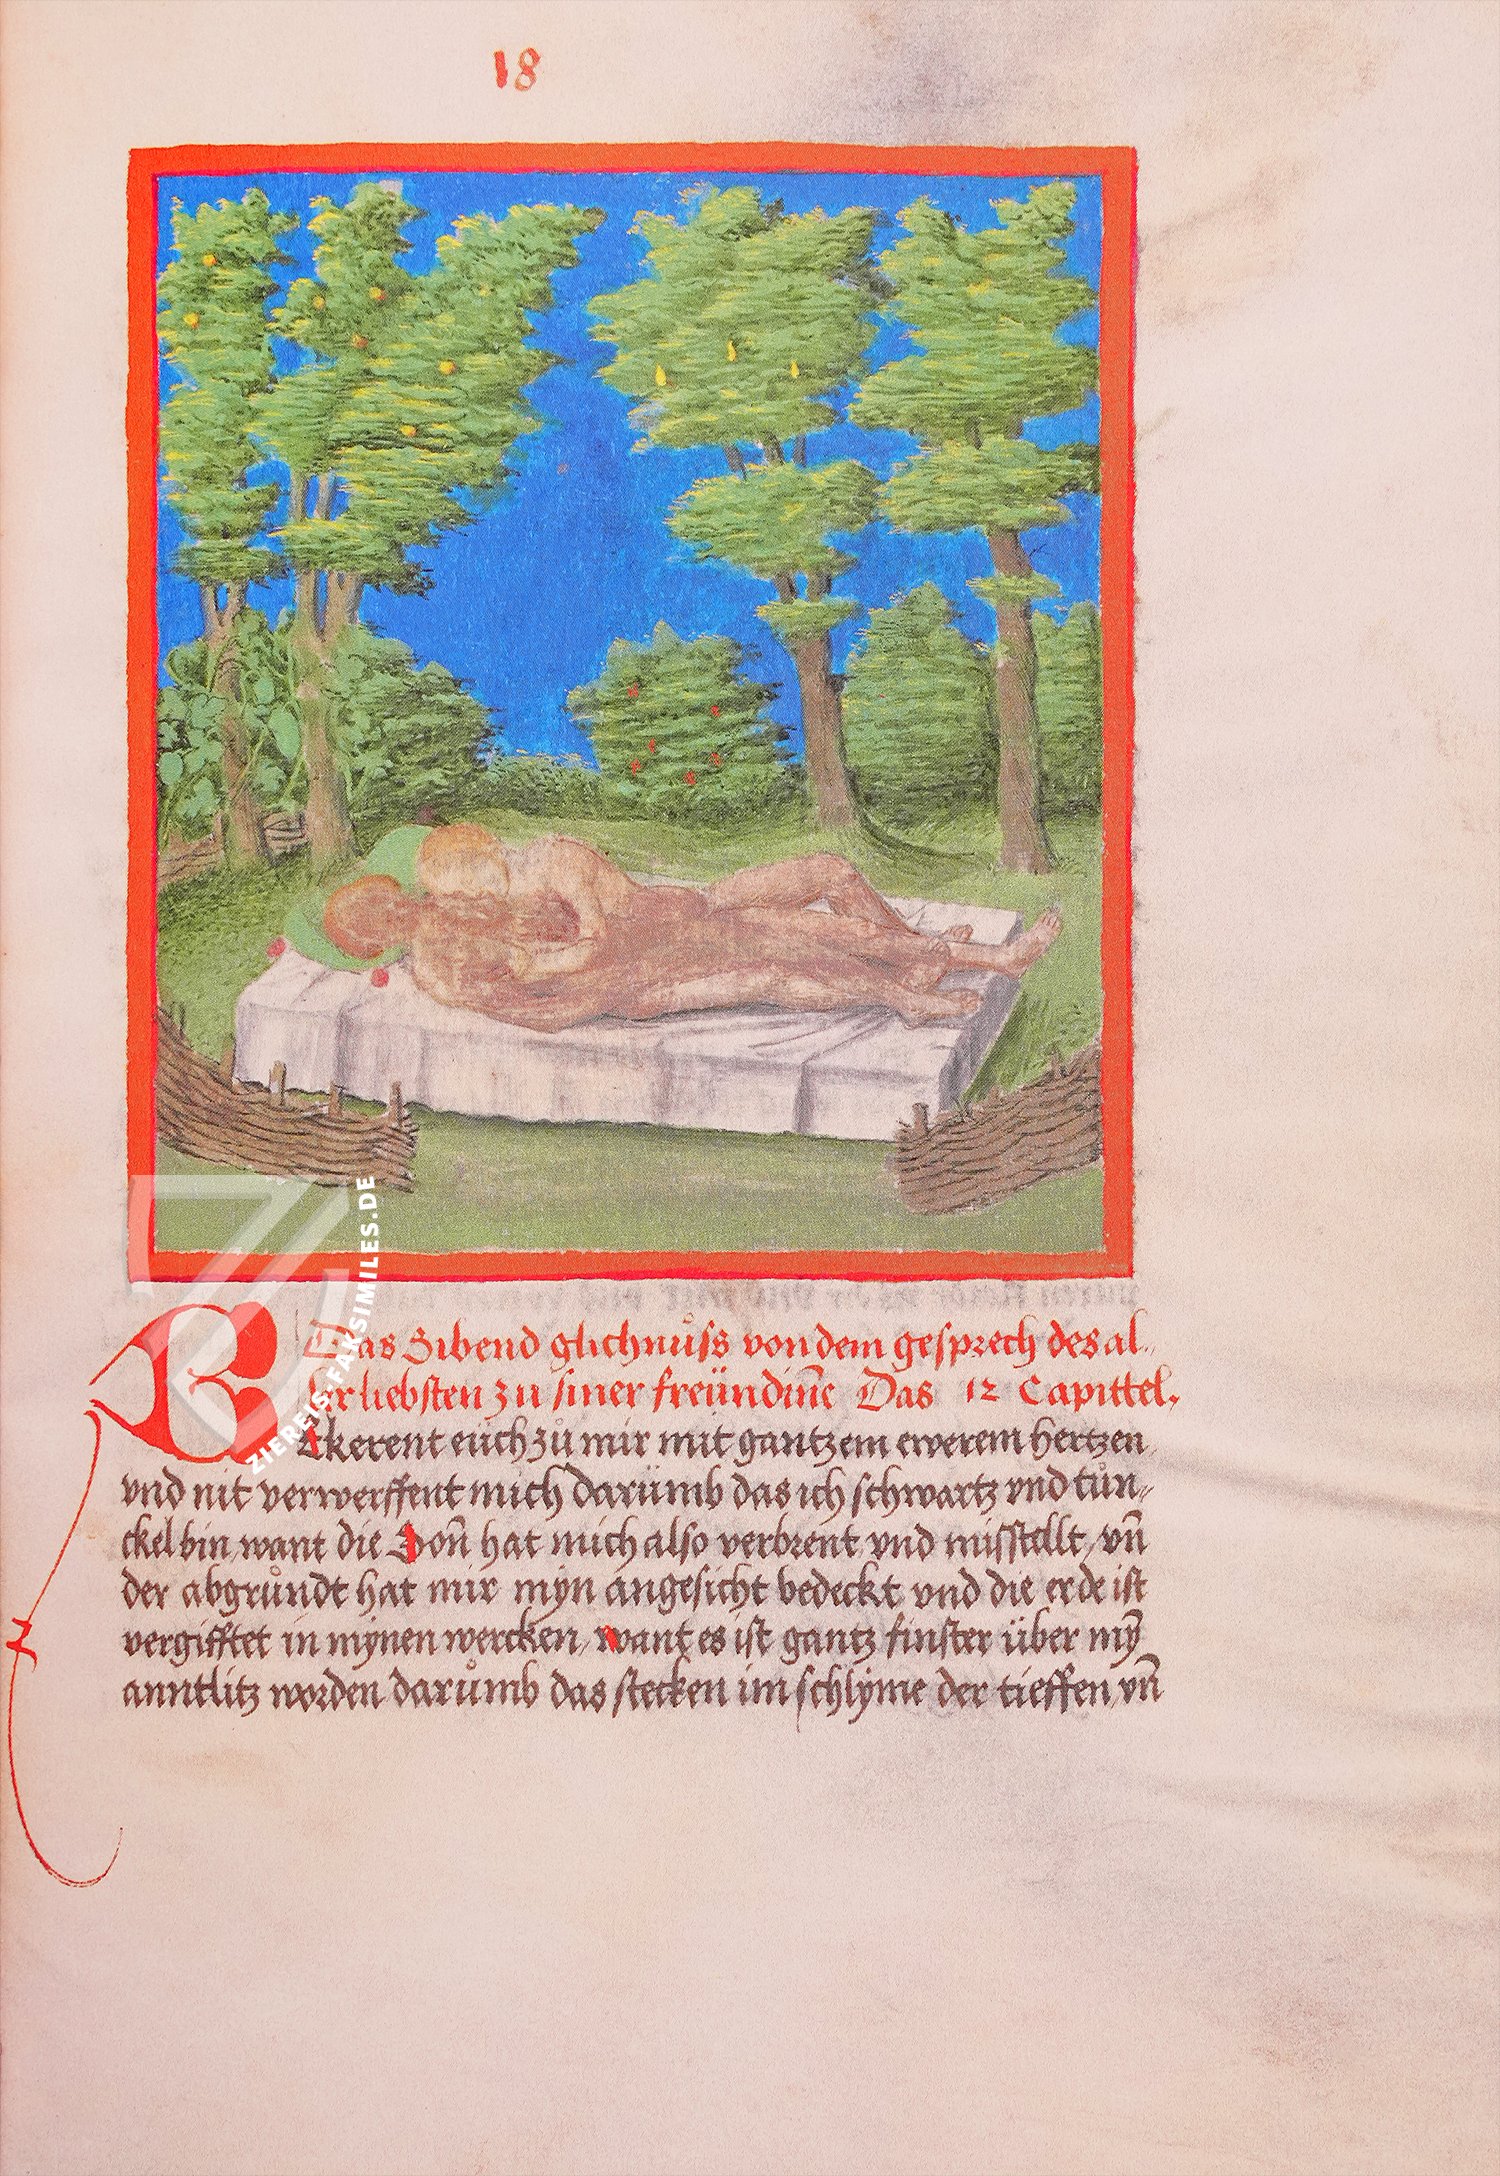 18
Das Sibend glichnu̍ss von dem gesprech des al-
ler liebsten zu siner freündin̄e Das 12 Capittel.
Bekerent eüch zů mir mit gantzem ewerem hertzen
vnd nit verwerffent mich darümb das ich schwartz vnd tůn-
ckel bin, want die Son̄ hat mich also verbrent vnd misstellt, vn̄
der abgründt hat mir myn angesicht bedeckt vnd die erde ist
vergifftet in mynen wercken, want es ist gantz finster über mȳ
anntlitz worden darůmb das stecken im schlyme der tieffen, vn̄
ZIEREIS-FAKSIMILES.DE